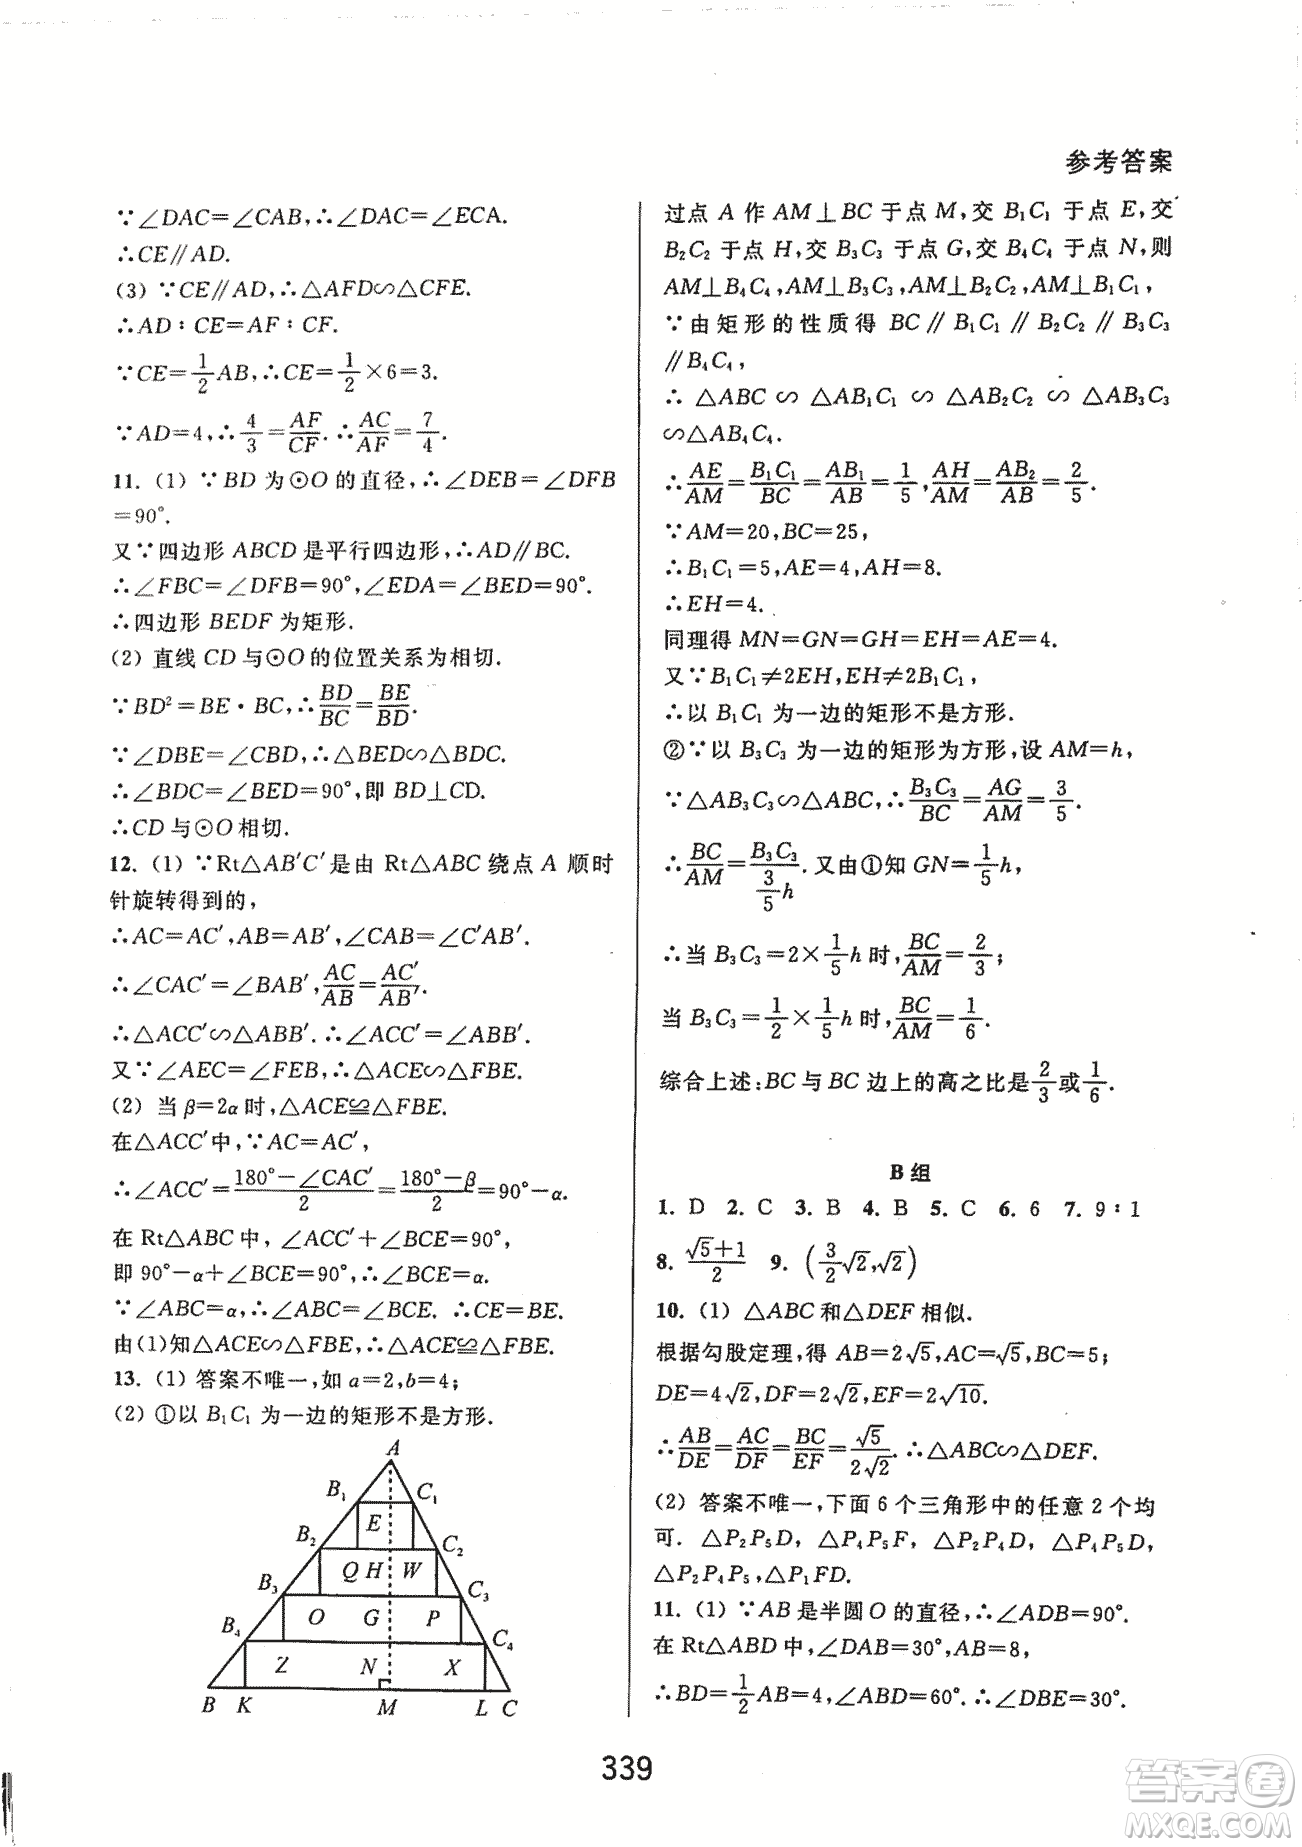 参考答案
∵∠DAC=∠CAB,∴∠DAC=∠ECA.
∴CE∥AD.
(3) ∵CE∥AD,∴△AFD∽△CFE.
∴AD∶CE=AF∶CF.
∵CE=1/2AB,∴CE=1/2×6=3.
∵AD=4,∴4/3=AF/CF.∴AC/AF=7/4.
11. (1) ∵BD 为⊙O 的直径,∴∠DEB=∠DFB
=90°.
又∵四边形 ABCD 是平行四边形,∴AD∥BC.
∴∠FBC=∠DFB=90°,∠EDA=∠BED=90°.
∴四边形 BEDF 为矩形.
(2) 直线 CD 与⊙O 的位置关系为相切.
∵BD²=BE·BC,∴BD/BC=BE/BD.
∵∠DBE=∠CBD,∴△BED∽△BDC.
∴∠BDC=∠BED=90°,即 BD⊥CD.
∴CD 与⊙O 相切.
12. (1) ∵Rt△AB′C′是由 Rt△ABC 绕点 A 顺时
针旋转得到的,
∴AC=AC′,AB=AB′,∠CAB=∠C′AB′.
∴∠CAC′=∠BAB′,AC/AB=AC′/AB′.
∴△ACC′∽△ABB′.∴∠ACC′=∠ABB′.
又∵∠AEC=∠FEB,∴△ACE∽△FBE.
(2) 当 β=2α 时,△ACE≌△FBE.
在△ACC′中,∵AC=AC′,
∴∠ACC′=(180°-∠CAC′)/2=(180°-β)/2=90°-α.
在 Rt△ABC 中,∠ACC′+∠BCE=90°,
即 90°-α+∠BCE=90°,∴∠BCE=α.
∵∠ABC=α,∴∠ABC=∠BCE. ∴CE=BE.
由(1)知△ACE∽△FBE,∴△ACE≌△FBE.
13. (1) 答案不唯一,如 a=2,b=4;
(2) ①以 B₁C₁ 为一边的矩形不是方形.
A
B₁ C₁
E
B₂ C₂
Q H W
B₃ C₃
O G P
B₄ C₄
Z N X
B K M L C
过点 A 作 AM⊥BC 于点 M,交 B₁C₁ 于点 E,交
B₂C₂ 于点 H,交 B₃C₃ 于点 G,交 B₄C₄ 于点 N,则
AM⊥B₄C₄,AM⊥B₃C₃,AM⊥B₂C₂,AM⊥B₁C₁,
∵由矩形的性质得 BC∥B₁C₁∥B₂C₂∥B₃C₃
∥B₄C₄,
∴△ABC∽△AB₁C₁∽△AB₂C₂∽△AB₃C₃
∽△AB₄C₄.
∴AE/AM=B₁C₁/BC=AB₁/AB=1/5,AH/AM=AB₂/AB=2/5.
∵AM=20,BC=25,
∴B₁C₁=5,AE=4,AH=8.
∴EH=4.
同理得 MN=GN=GH=EH=AE=4.
又∵B₁C₁≠2EH,EH≠2B₁C₁,
∴以 B₁C₁ 为一边的矩形不是方形.
②∵以 B₃C₃ 为一边的矩形为方形,设 AM=h,
∵△AB₃C₃∽△ABC,∴B₃C₃/BC=AG/AM=3/5.
∴BC/AM=B₃C₃/(3/5 h).又由①知 GN=1/5h,
∴当 B₃C₃=2×1/5h 时,BC/AM=2/3;
当 B₃C₃=1/2×1/5h 时,BC/AM=1/6.
综合上述:BC 与 BC 边上的高之比是2/3或1/6.
B 组
1. D 2. C 3. B 4. B 5. C 6. 6 7. 9∶1
8. (√5+1)/2 9. (3/2√2,√2)
10. (1) △ABC 和△DEF 相似.
根据勾股定理,得 AB=2√5,AC=√5,BC=5;
DE=4√2,DF=2√2,EF=2√10.
∴AB/DE=AC/DF=BC/EF=√5/(2√2).∴△ABC∽△DEF.
(2) 答案不唯一,下面 6 个三角形中的任意 2 个均
可. △P₂P₅D,△P₄P₅F,△P₂P₄D,△P₄P₅D,
△P₂P₄P₅,△P₁FD.
11. (1) ∵AB 是半圆 O 的直径,∴∠ADB=90°.
在 Rt△ABD 中,∠DAB=30°,AB=8,
∴BD=1/2AB=4,∠ABD=60°.∴∠DBE=30°.
339
答案圈
MXQE.COM